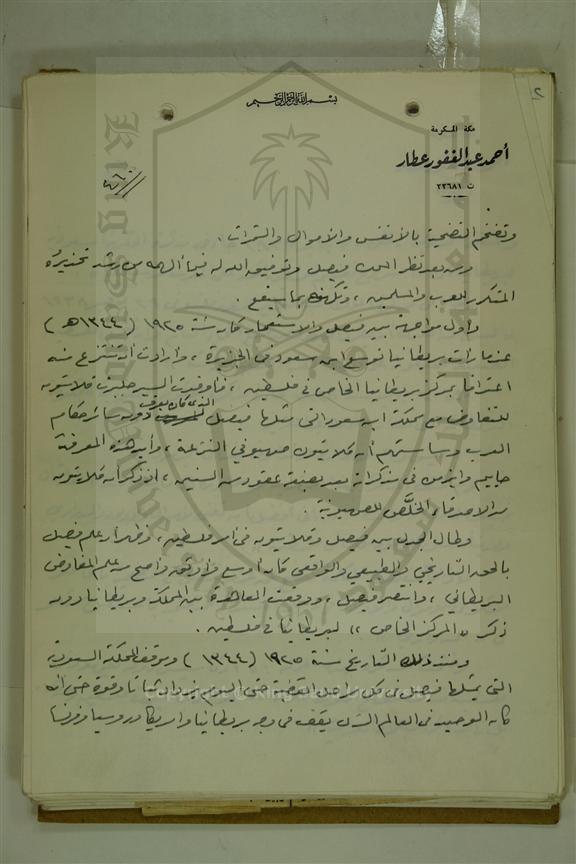 ٢
بسم الله الرحمن الرحيم
مكة المكرمة
أحمد عبد الغفور عطار
ت ٢٢٦٨١
وتضخم التضحية بالأنفس والأموال والثمرات .
ومن بعد نظر الملك فيصل وتوفيق الله له فيما ألهمه من رشد تحذيره
المتكرر للعرب والمسلمين ، وتكهنه بما سيقع .
وأول مواجهة بين فيصل والاستعمار كان سنة ١٩٢٥ ( ١٣٤٤ هـ )
عندما رأت بريطانيا توسع ابن سعود في الجزيرة ، وأرادت أن تنتزع منه
اعترافا بمركز بريطانيا الخاص في فلسطين ، فأوفدت السير جلبرت كلايتون
للتفاوض مع مملكة ابن سعود التي مثلها فيصل الذي كان يعرف دون سائر حكام
العرب وساستهم أن كلايتون صهيوني النزعة ، وأيد هذه المعرفة
حاييم وايزمن في مذكراته بعد بضعة عقود من السنين ، اذ ذكر أن كلايتون
من الأصدقاء الخلّص للصهيونية .
وطال الجدل بين فيصل وكلايتون في أمر فلسطين ، وظهر أن علم فيصل
بالحق التاريخي والطبيعي والواقعي كان أوسع وأوثق وأصح من علم المفاوض
البريطاني ، وانتصر فيصل ، ووقعت المعاهدة بين المملكة وبريطانيا دون
ذكر « المركز الخاص » لبريطانيا في فلسطين .
ومنذ ذلك التاريخ سنة ١٩٢٥ ( ١٣٤٤ ) وموقف المملكة السعودية
التي يمثلها فيصل في كل مراحل القضية حتى اليوم يزداد ثباتا وقوة حتى انه
كان الوحيد في العالم الذي يقف في وجه بريطانيا وأمريكا وروسيا وفرنسا